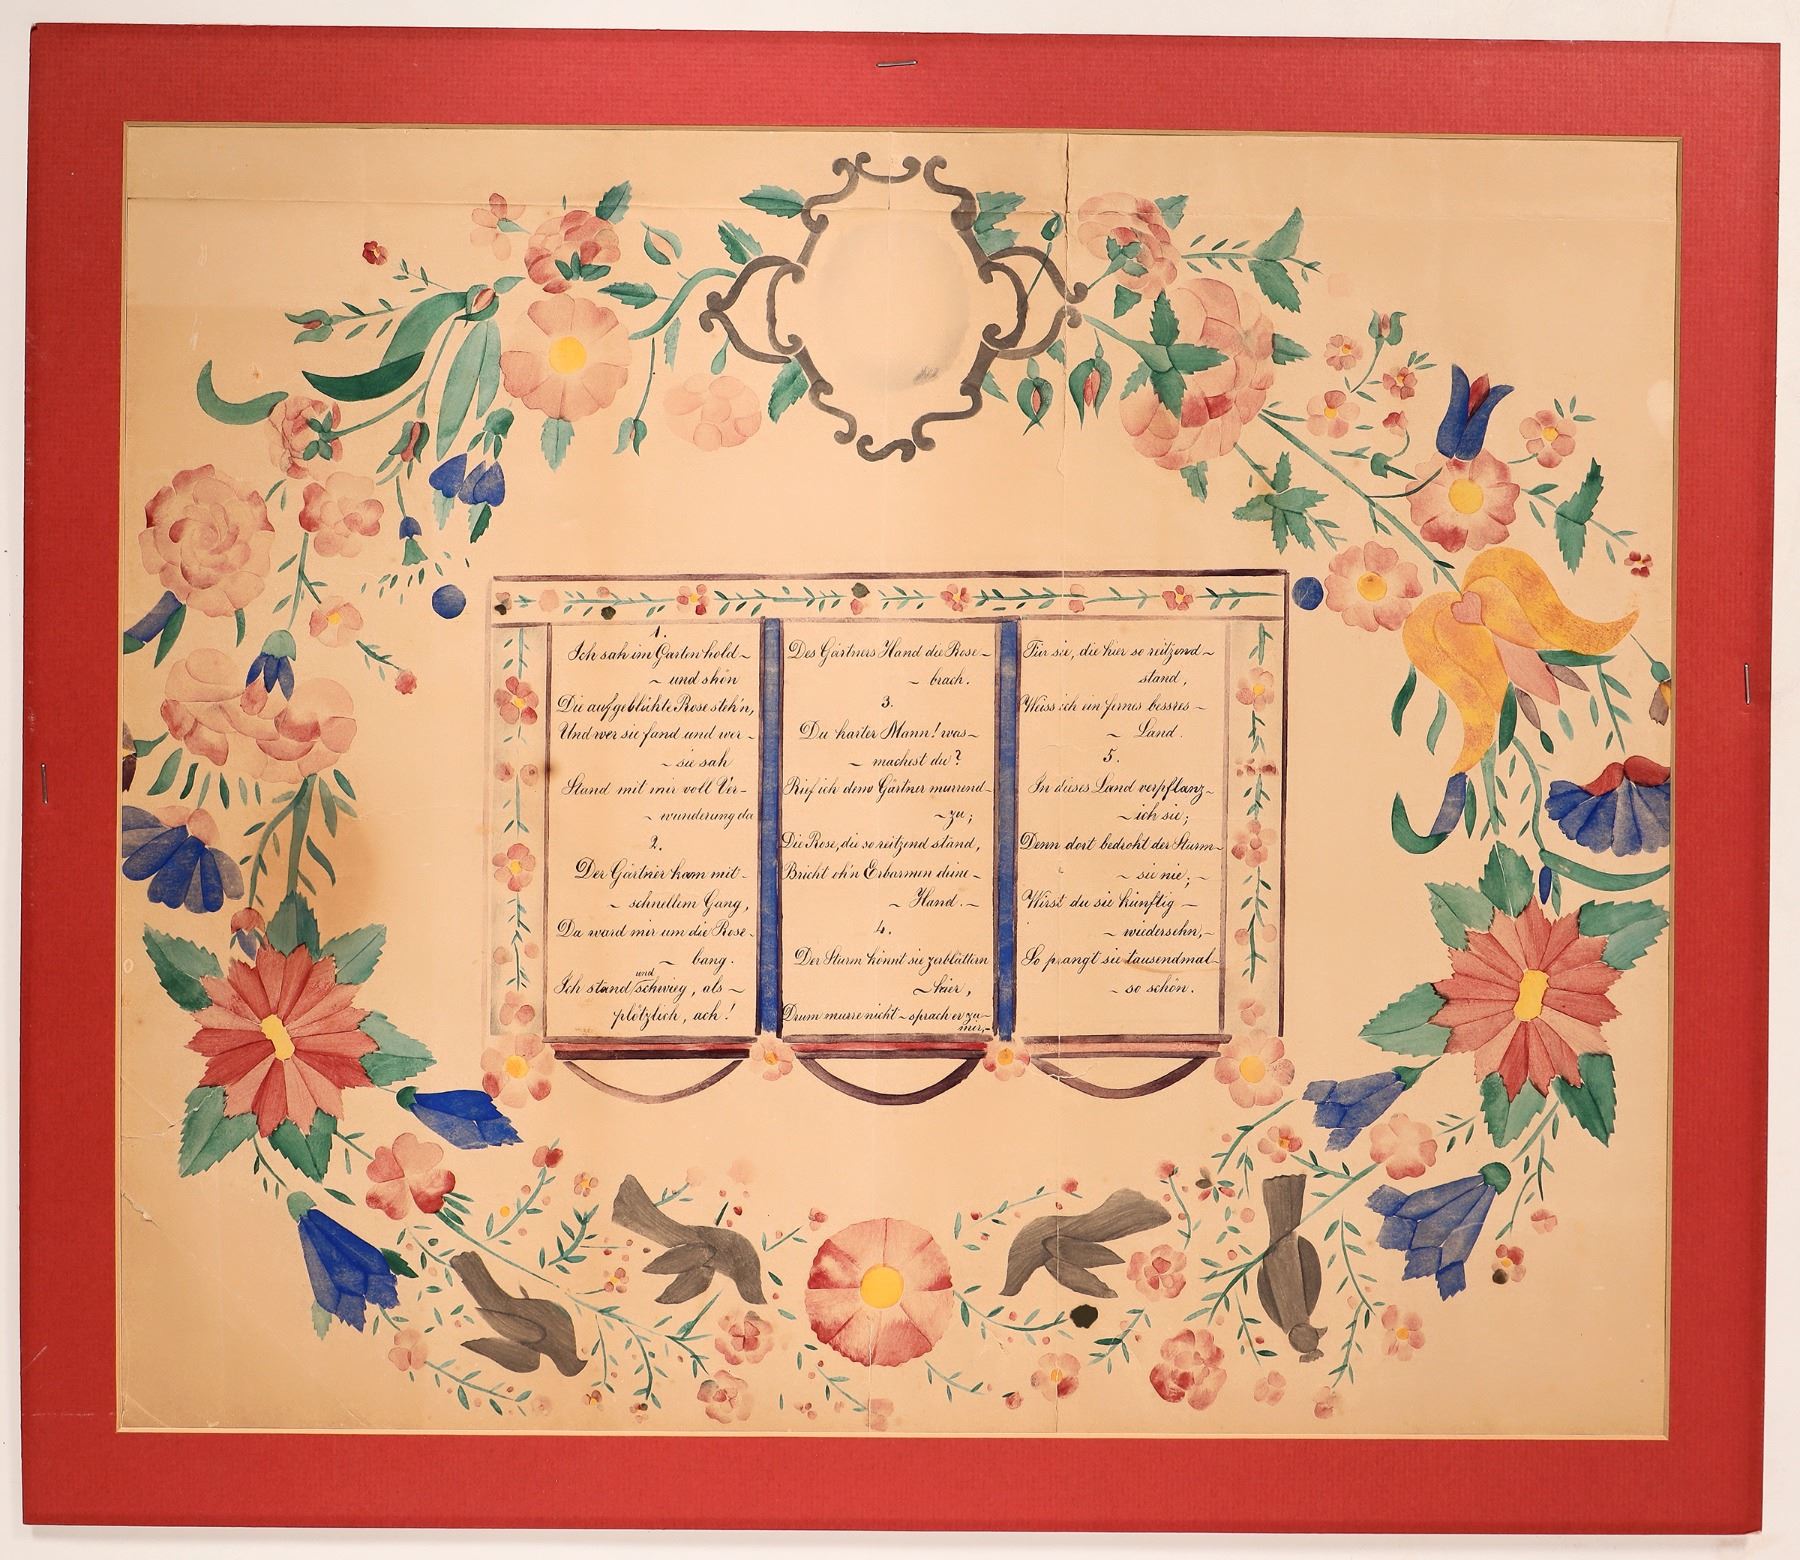 1.
Ich sah im Garten hold ~
~ und shön
Die aufgeblühte Rose steh'n,
Und wer sie fand und wer -
~ sie sah
Stand mit mir voll Ver -
~ wunderung da
2.
Der Gärtner kam mit -
~ schnellem Gang,
Da ward mir um die Rose -
~ bang.
Ich stand und schwieg, als ~
plötzlich, ach!
Des Gärtners Hand die Rose ~
~ brach.
3.
Du harter Mann! was ~
~ machest du?
Rief ich dem Gärtner murrend -
~ zu;
Die Rose, die so reitzend stand,
Bricht oh'n Erbarmen deine -
~ Hand. ~
4.
Der Sturm könnt sie zerblättern
~ hier,
Drum murre nicht ~ sprach er zu -
mir, -
Für sie, die hier so reitzend ~
stand,
Weiss ich ein fernes bessres ~
~ Land.
5.
In dieses Land verpflanz ~
~ ich sie;
Denn dort bedroht der Sturm -
~ sie nie; ~
Wirst du sie künftig ~
~ wiedersehn, ~
So prangt sie tausendmal ~
~ so schön.